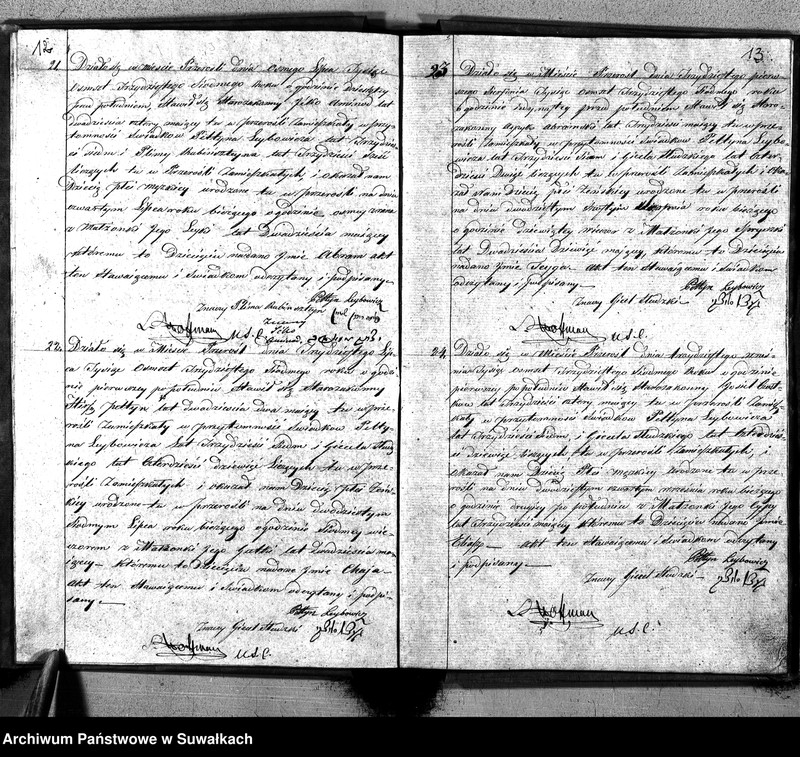 12
21 Działo się w mieście Przerośli dnia Osmego Lipca Tysiąc
osmset Trzydziestego Siodmego Roku o godzinie dziesiątey
przed południem, Stawił się Starozakonny Jitko lat
dwadzieścia cztery maiący tu w przerośli Zamieszkały w przy-
tomności Swiadków Peltyna Leybowicza lat Trzydzieści
siedm i Rubinsztyna lat Trzydzieści
liczących tu w Przerośli Zamieszkałych i okazał nam
Dziecię płci męzkiey urodzone tu w przerośli na dniu
czwartym Lipca roku bieżącego o godzinie osmey zrana
z Małżonki Jego lat Dwadzieścia maiącey
któremu to Dziecięciu nadano Jmie Abram akt
ten Stawaiącemu i Swiadkom odczytany i podpisany
Peltyn Leybowicz
Rubinsztyn
Hoffman U.S.C.
22. Działo się w Mieście Przerośl dnia Trzydziestego Lip-
ca Tysiąc Osmset Trzydziestego Siodmego roku o godzi-
nie pierwszey po południu Stawił się Starozakonny
lat dwadzieścia dwa maiący tu w prze-
rośli Zamieszkały w przytomności Swiadków Pelty-
na Leybowicza lat Trzydzieści Siedm i Giecela Studz-
kiego lat Czterdzieści dziewięć liczących tu w prze-
rośli Zamieszkałych i okazał nam Dziecię płci Zeń-
skiey urodzone tu w przerośli na dniu dwudziestym
siodmym Lipca roku bieżącego o godzinie Siodmey wie-
czorem z Małżonki Jego lat Dwadzieścia ma-
iącey – któremu to Dziecięciu nadano Jmie Chaja –
akt ten Stawaiącemu i Swiadkom odczytany i podpi-
sany –
Peltyn Leybowicz
Giecel Studzki
Hoffman U.S.C.
13
23 Działo się w Mieście Przerośl dnia Trzydziestego pierw-
szego Sierpnia Tysiąc osmset Trzydziestego Siodmego roku
o godzinie przed południem Stawił się Staro-
zakonny lat Trzydzieści maiący tu w prze-
rośli Zamieszkały w przytomności Swiadków Peltyna Leybo-
wicza lat Trzydzieści Siedm i Giecela Studzkiego lat Czter-
dzieści liczących tu w przerośli Zamieszkałych i oka-
zał nam Dziecię płci Zeńskiey urodzone tu w przerośli
na dniu dwudziestym Sierpnia roku bieżącego
o godzinie Dziewiątey wieczor z Małżonki Jego
lat Dwadzieścia Dziewięć maiącey, któremu to Dziecięciu
nadano Jmie akt ten Stawaiącemu i Swiadkom
odczytany i podpisany –
Peltyn Leybowicz
Giecel Studzki
Hoffman U.S.C.
24. Działo się w Mieście Przerośl dnia trzydziestego wrze-
nia Tysiąc osmset Trzydziestego Siodmego Roku o godzinie
pierwszey po południu Stawił się Starozakonny
lat Trzydzieści cztery maiący tu w przerośli Zamiesz-
kały w przytomności Swiadków Peltyna Leybowicza
lat Trzydzieści Siedm, i Giecela Studzkiego lat Czterdzie-
ści dziewięć liczących tu w przerośli Zamieszkałych, i
okazał nam Dziecię Płci męzkiey urodzone tu w prze-
rośli na dniu dwudziestym czwartym września roku bieżącego
o godzinie drugiey po południu z Małżonki Jego
lat Trzydzieści maiącey któremu to Dziecięciu nadano Jmie
akt ten Stawaiącemu i Swiadkom odczytany
i podpisany –
Peltyn Leybowicz
Giecel Studzki
Hoffman
U.S.C.
Archiwum Państwowe w Suwałkach